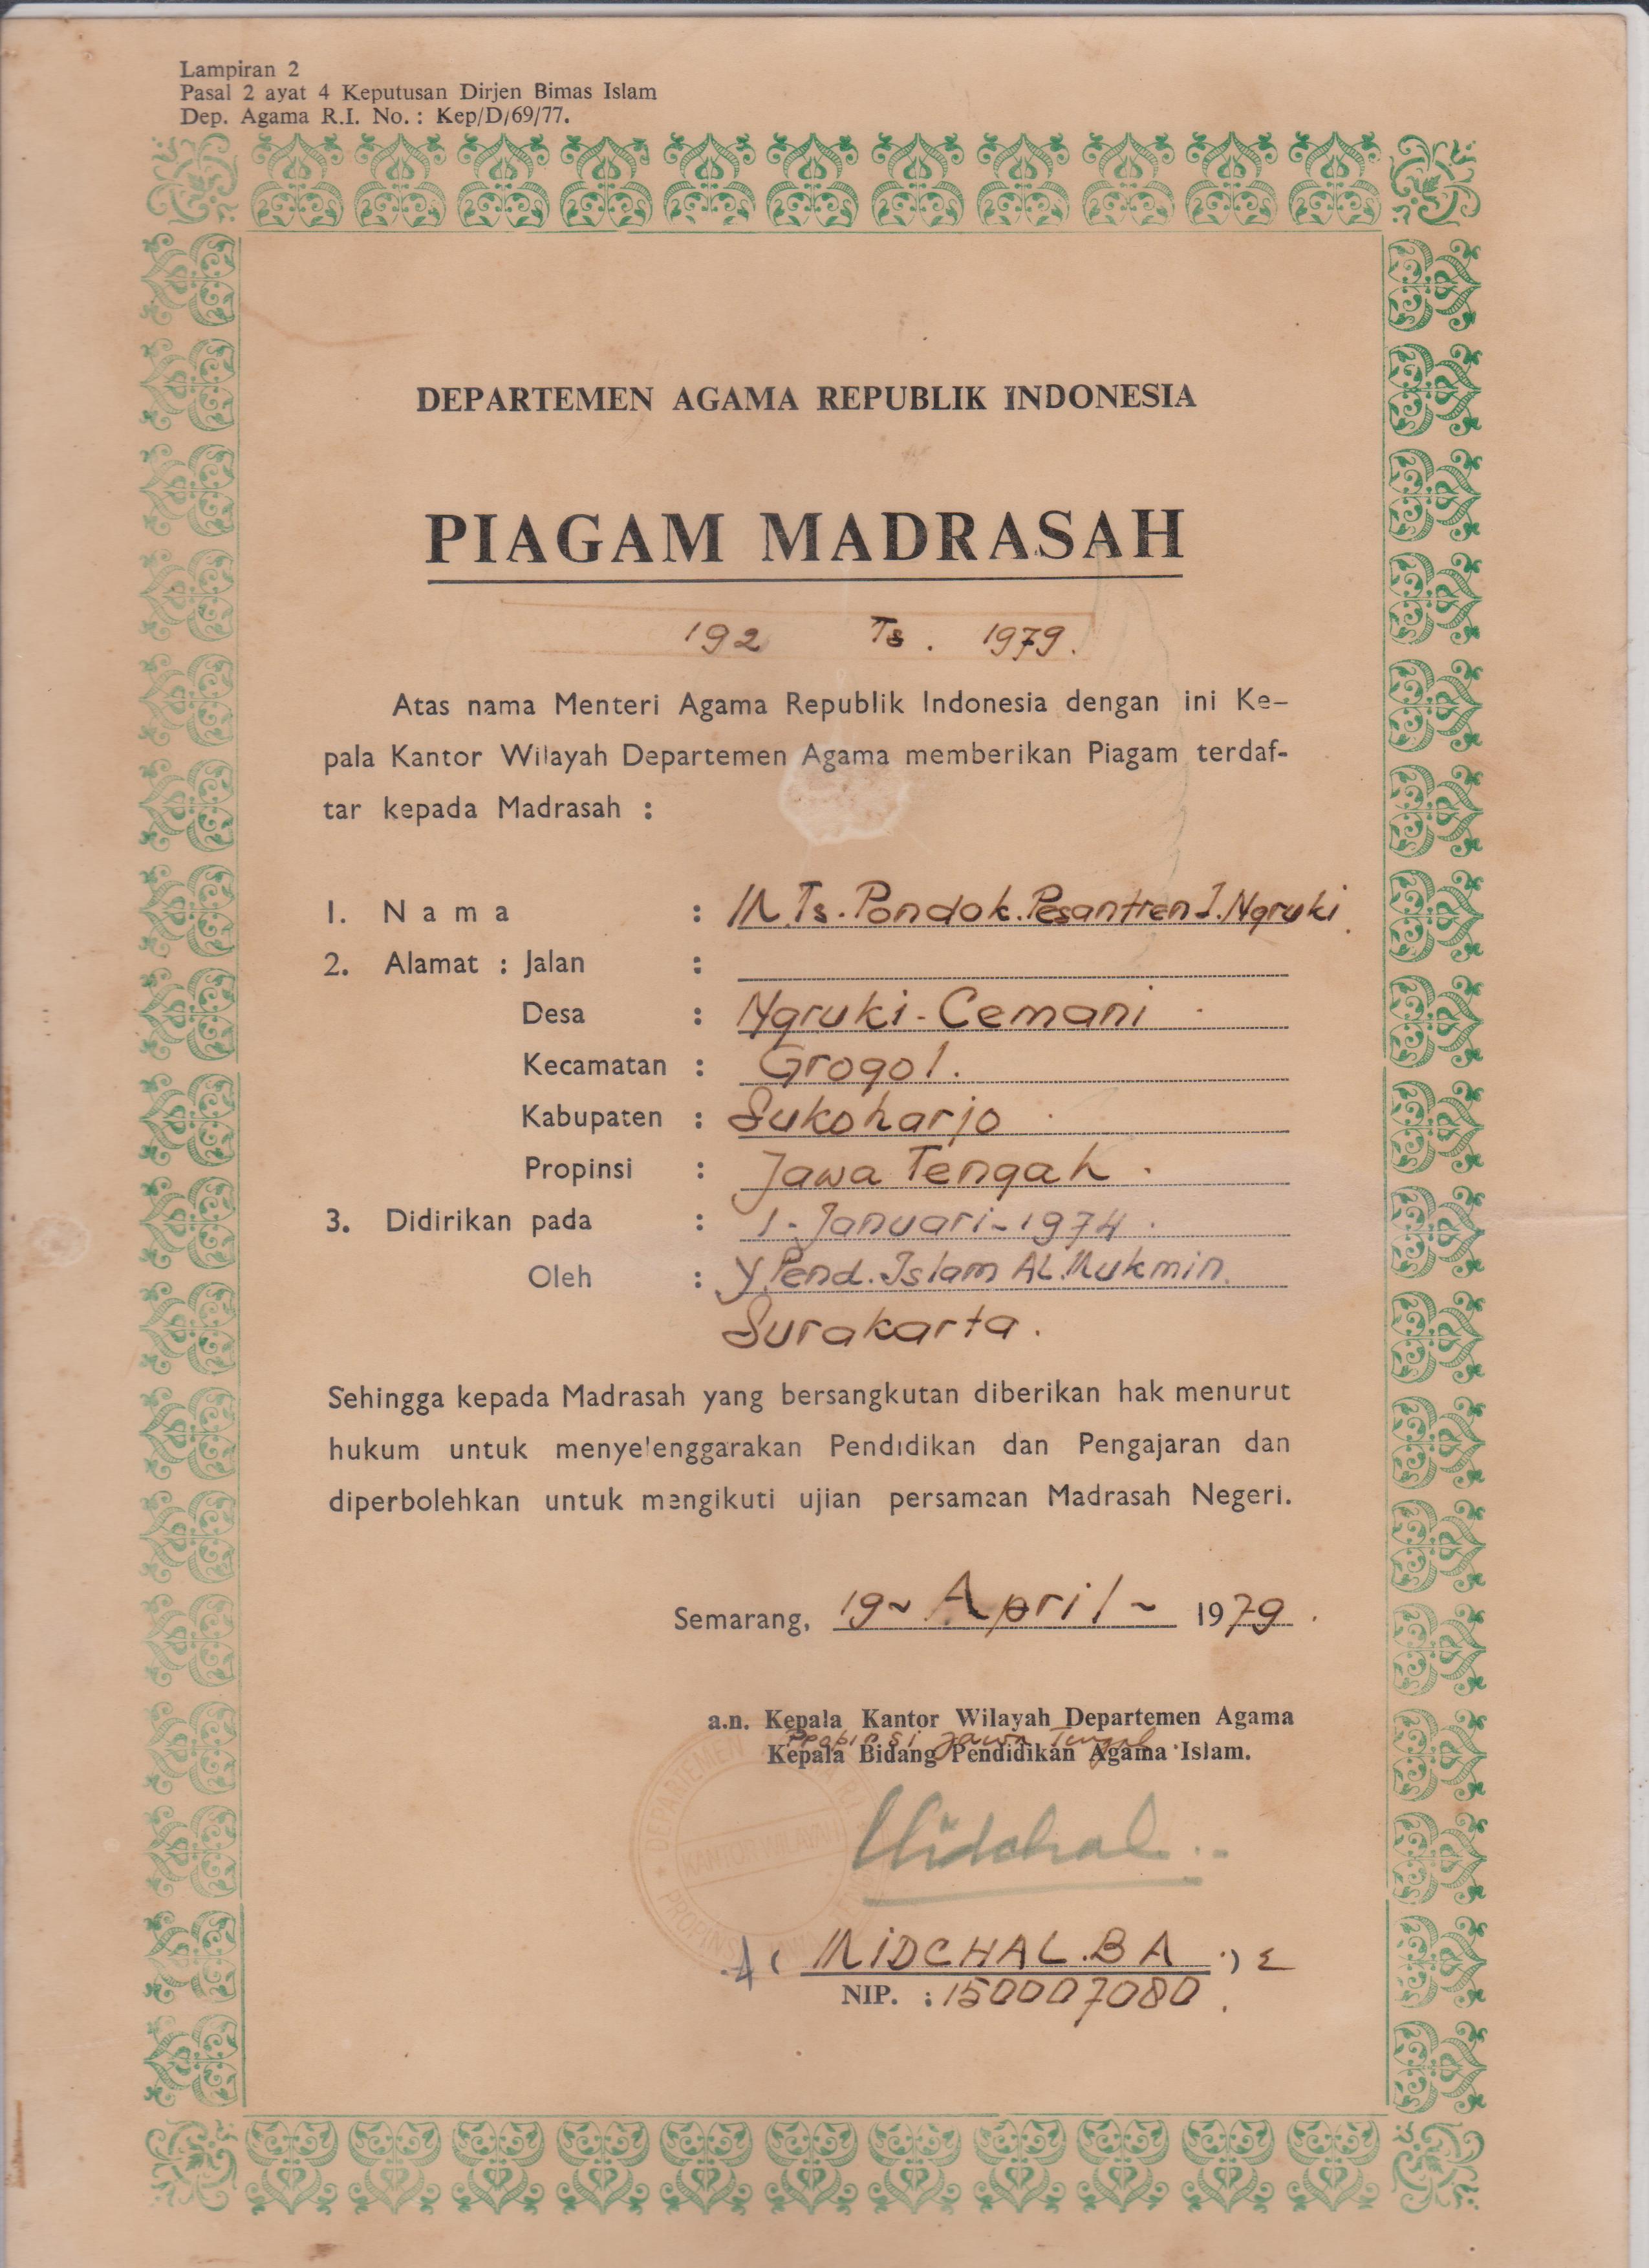 Lampiran 2
Pasal 2 ayat 4 Keputusan Dirjen Bimas Islam
Dep. Agama R.I. No. : Kep/D/69/77.
DEPARTEMEN AGAMA REPUBLIK INDONESIA
PIAGAM MADRASAH
192 Ts. 1979.
Atas nama Menteri Agama Republik Indonesia dengan ini Ke-
pala Kantor Wilayah Departemen Agama memberikan Piagam terdaf-
tar kepada Madrasah :
1. Nama : M.Ts. Pondok. Pesantren I. Ngruki.
2. Alamat : Jalan :
Desa : Ngruki - Cemani
Kecamatan : Grogol.
Kabupaten : Sukoharjo
Propinsi : Jawa Tengah.
3. Didirikan pada : 1 - Januari - 1974.
Oleh : Y. Pend. Islam AL. Mukmin.
Surakarta.
Sehingga kepada Madrasah yang bersangkutan diberikan hak menurut
hukum untuk menyelenggarakan Pendidikan dan Pengajaran dan
diperbolehkan untuk mengikuti ujian persamaan Madrasah Negeri.
Semarang, 19 - April - 1979.
a.n. Kepala Kantor Wilayah Departemen Agama
Propinsi Jawa Tengah
Kepala Bidang Pendidikan Agama Islam.
DEPARTEMEN AGAMA R.I.
KANTOR WILAYAH
PROPINSI
Midchal..
( MIDCHAL. BA. )
NIP. : 150007080.